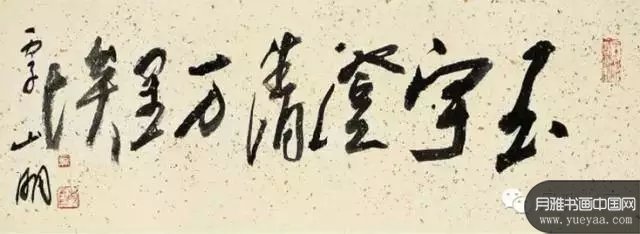 玉宇澄清万里埃
吴山明
月雅书画中国网
www.yueyaa.com